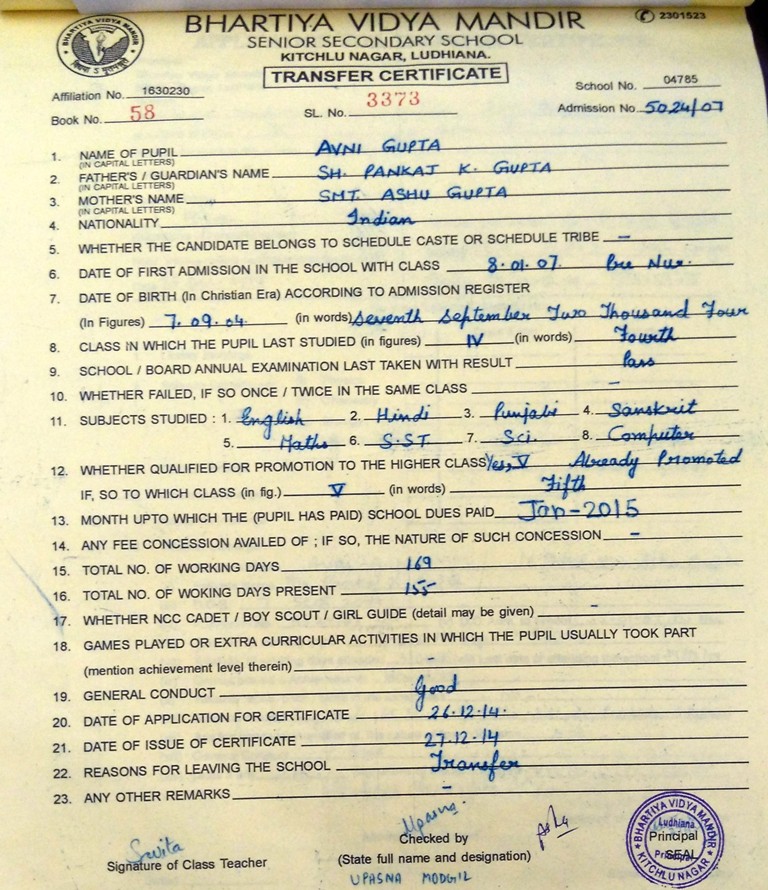 BHARTIYA VIDYA MANDIR
2301523
SENIOR SECONDARY SCHOOL
KITCHLU NAGAR, LUDHIANA.
TRANSFER CERTIFICATE
Affiliation No. 1630230 School No. 04785
Book No. 58 SL. No. 3373 Admission No. 5024/07
1. NAME OF PUPIL AVNI GUPTA
(IN CAPITAL LETTERS)
2. FATHER'S / GUARDIAN'S NAME SH. PANKAJ K. GUPTA
(IN CAPITAL LETTERS)
3. MOTHER'S NAME SMT. ASHU GUPTA
(IN CAPITAL LETTERS)
4. NATIONALITY Indian
5. WHETHER THE CANDIDATE BELONGS TO SCHEDULE CASTE OR SCHEDULE TRIBE –
6. DATE OF FIRST ADMISSION IN THE SCHOOL WITH CLASS 8.01.07. Pre Nur.
7. DATE OF BIRTH (In Christian Era) ACCORDING TO ADMISSION REGISTER
(In Figures) 7.09.04. (in words) Seventh September Two Thousand Four
8. CLASS IN WHICH THE PUPIL LAST STUDIED (in figures) IV (in words) Fourth
9. SCHOOL / BOARD ANNUAL EXAMINATION LAST TAKEN WITH RESULT Pass
10. WHETHER FAILED, IF SO ONCE / TWICE IN THE SAME CLASS –
11. SUBJECTS STUDIED : 1. English 2. Hindi 3. Punjabi 4. Sanskrit
5. Maths 6. S.ST 7. Sci. 8. Computer
12. WHETHER QUALIFIED FOR PROMOTION TO THE HIGHER CLASS Yes, V Already Promoted
IF, SO TO WHICH CLASS (in fig.) V (in words) Fifth
13. MONTH UPTO WHICH THE (PUPIL HAS PAID) SCHOOL DUES PAID Jan-2015
14. ANY FEE CONCESSION AVAILED OF ; IF SO, THE NATURE OF SUCH CONCESSION –
15. TOTAL NO. OF WORKING DAYS 169
16. TOTAL NO. OF WOKING DAYS PRESENT 155
17. WHETHER NCC CADET / BOY SCOUT / GIRL GUIDE (detail may be given) –
18. GAMES PLAYED OR EXTRA CURRICULAR ACTIVITIES IN WHICH THE PUPIL USUALLY TOOK PART
(mention achievement level therein) –
19. GENERAL CONDUCT Good
20. DATE OF APPLICATION FOR CERTIFICATE 26.12.14.
21. DATE OF ISSUE OF CERTIFICATE 27.12.14
22. REASONS FOR LEAVING THE SCHOOL Transfer
23. ANY OTHER REMARKS –
Upasna.
Checked by
Signature of Class Teacher
(State full name and designation)
UPASNA MODGIL
BHARTIYA VIDYA MANDIR
Ludhiana
Principal
Principal
SEAL
KITCHLU NAGAR